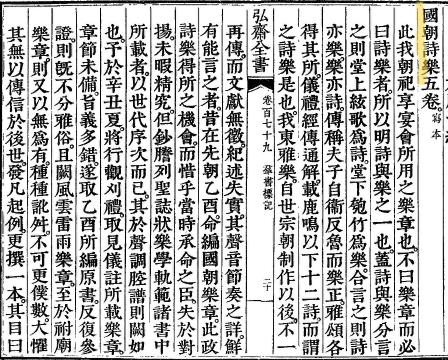 國朝詩樂五卷。寫本
此我朝祀享宴會所用之樂章也。不曰樂章而必
曰詩樂者。所以明詩與樂之一也。蓋詩與樂分言
之則堂上絃歌爲詩。堂下匏竹爲樂。合言之則詩
亦樂樂亦詩。傳稱夫子自衛反魯而樂正。雅頌各
得其所。儀禮經傳通解。載鹿鳴以下十二詩而謂
之詩樂是也。我東雅樂自世宗朝制作以後。不一
弘齋全書
卷百七十九
羣書標記
二十
再傳。而文獻無徵。紀述失實。其聲音節奏之詳。鮮
有能言之者。昔在先朝乙酉。命編國朝樂章。此政
詩樂得所之機會。而惜乎當時承命之臣失於對
揚。未暇精究。但鈔謄列聖誌狀樂學軌範諸書中
所載者。以世代序次而已。其於聲調腔譜則闕如
也。予於辛丑夏。將行觀刈禮。取見儀註所載樂章。
章節未備。旨義多錯。遂取乙酉所編原書。反復參
證。則旣不分雅俗。且闕風雲雷雨樂章。至於祔廟
樂章。則又以無爲有。種種訛舛。不可更僕數。大懼
其無以傳信於後世。發凡起例。更撰一本。其目曰